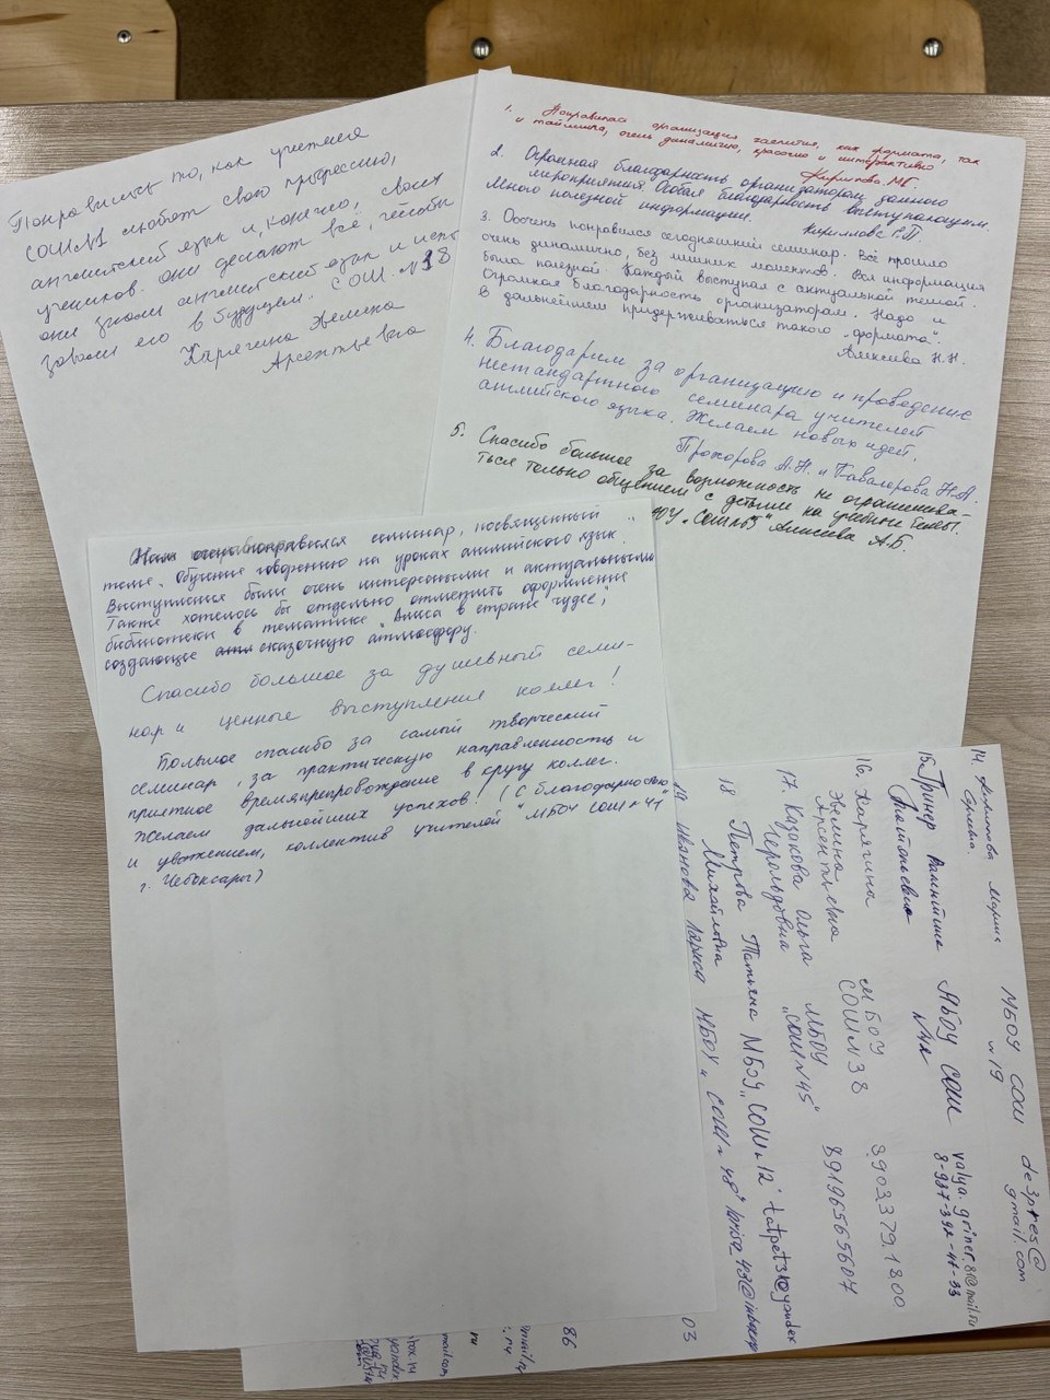 Понравилось то, как учителя
СОШ№1 любят свою профессию,
английский язык и, конечно, своих
учеников. Они делают всё, чтобы
они знали английский язык и испо
зовали его в будущем. СОШ №38
Харягина Эвелина
Арсентьевна
1. Понравилась организация занятия, как формата, так
и тайминга, очень динамично, красочно и интерактивно
Филиппова М.С.
2. Огромная благодарность организаторам данного
мероприятия. Особая благодарность выступающим.
Много полезной информации.
Кириллова Г.П.
3. Осочень понравился сегодняшний семинар. Всё прошло
очень динамично, без лишних моментов. Вся информация
была полезной. Каждый выступал с актуальной темой.
Огромная благодарность организаторам. Надо и
в дальнейшем придерживаться такого „формата".
Алексеева Н.Н.
4. Благодарим за организацию и проведение
нестандартного семинара учителей
английского языка. Желаем новых идей.
Прохорова А.Н. и Кавалерова Н.А.
5. Спасибо большое за возможность не ограничива-
ться только общением с детьми на учебные темы.
ОУ „СОШ №5" Алексеева А.Б.
Нам очень понравился семинар, посвященный
теме „Обучение говорению на уроках английского язык".
Выступления были очень интересными и актуальными
Также хотелось бы отдельно отметить оформление
библиотеки в тематике „Алиса в стране чудес",
создающее сказочную атмосферу.
Спасибо большое за душевный семи-
нар и ценные выступления коллег!
Большое спасибо за самый творческий
семинар, за практическую направленность и
приятное времяпрепровождение в кругу коллег.
Желаем дальнейших успехов! (С благодарностью
и уважением, коллектив учителей "МБОУ СОШ № 41"
г. Чебоксары)
14. Филиппова Мария МБОУ СОШ de3pres@
Сергеевна №19 gmail.com
15. Гринер Валентина МБОУ СОШ valya.griner.81@mail.ru
Анатольевна
16. Харягина МБОУ 89033791800
Эвелина СОШ №38
Арсентьевна
17. Казакова Ольга МБОУ 89196565607
Герольдовна „СОШ №45"
18 Петрова Татьяна МБОУ „СОШ №12"
Михайловна
19 Иванова Лариса МБОУ „СОШ № 48"
03
86
ru
mail.com
yandex